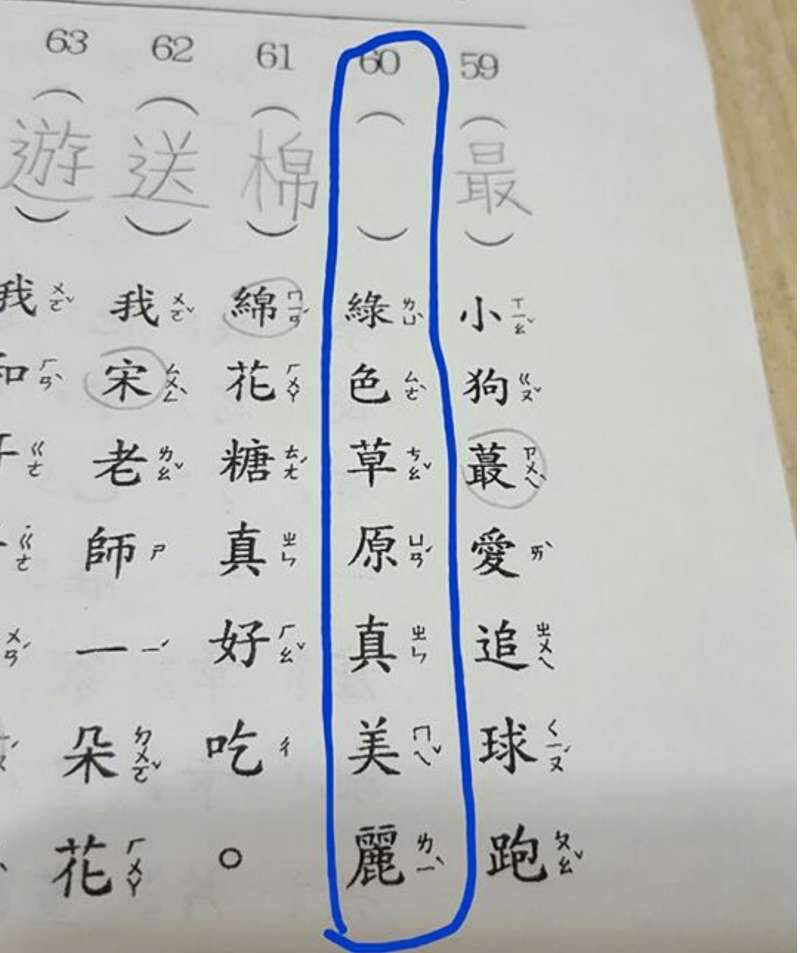 59
(最)
小ㄒㄧㄠˇ狗ㄍㄡˇ蕞ㄗㄨㄟˋ愛ㄞˋ追ㄓㄨㄟ球ㄑㄧㄡˊ跑ㄆㄠˇ
60
( )
綠ㄌㄩˋ色ㄙㄜˋ草ㄘㄠˇ原ㄩㄢˊ真ㄓㄣ美ㄇㄟˇ麗ㄌㄧˋ
61
(棉)
綿ㄇㄧㄢˊ花ㄏㄨㄚ糖ㄊㄤˊ真ㄓㄣ好ㄏㄠˇ吃ㄔ。
62
(送)
我ㄨㄛˇ宋ㄙㄨㄥˋ老ㄌㄠˇ師ㄕ一ㄧˋ朵ㄉㄨㄛˇ花ㄏㄨㄚ
63
(遊)
我ㄨㄛˇ和ㄏㄢˋ